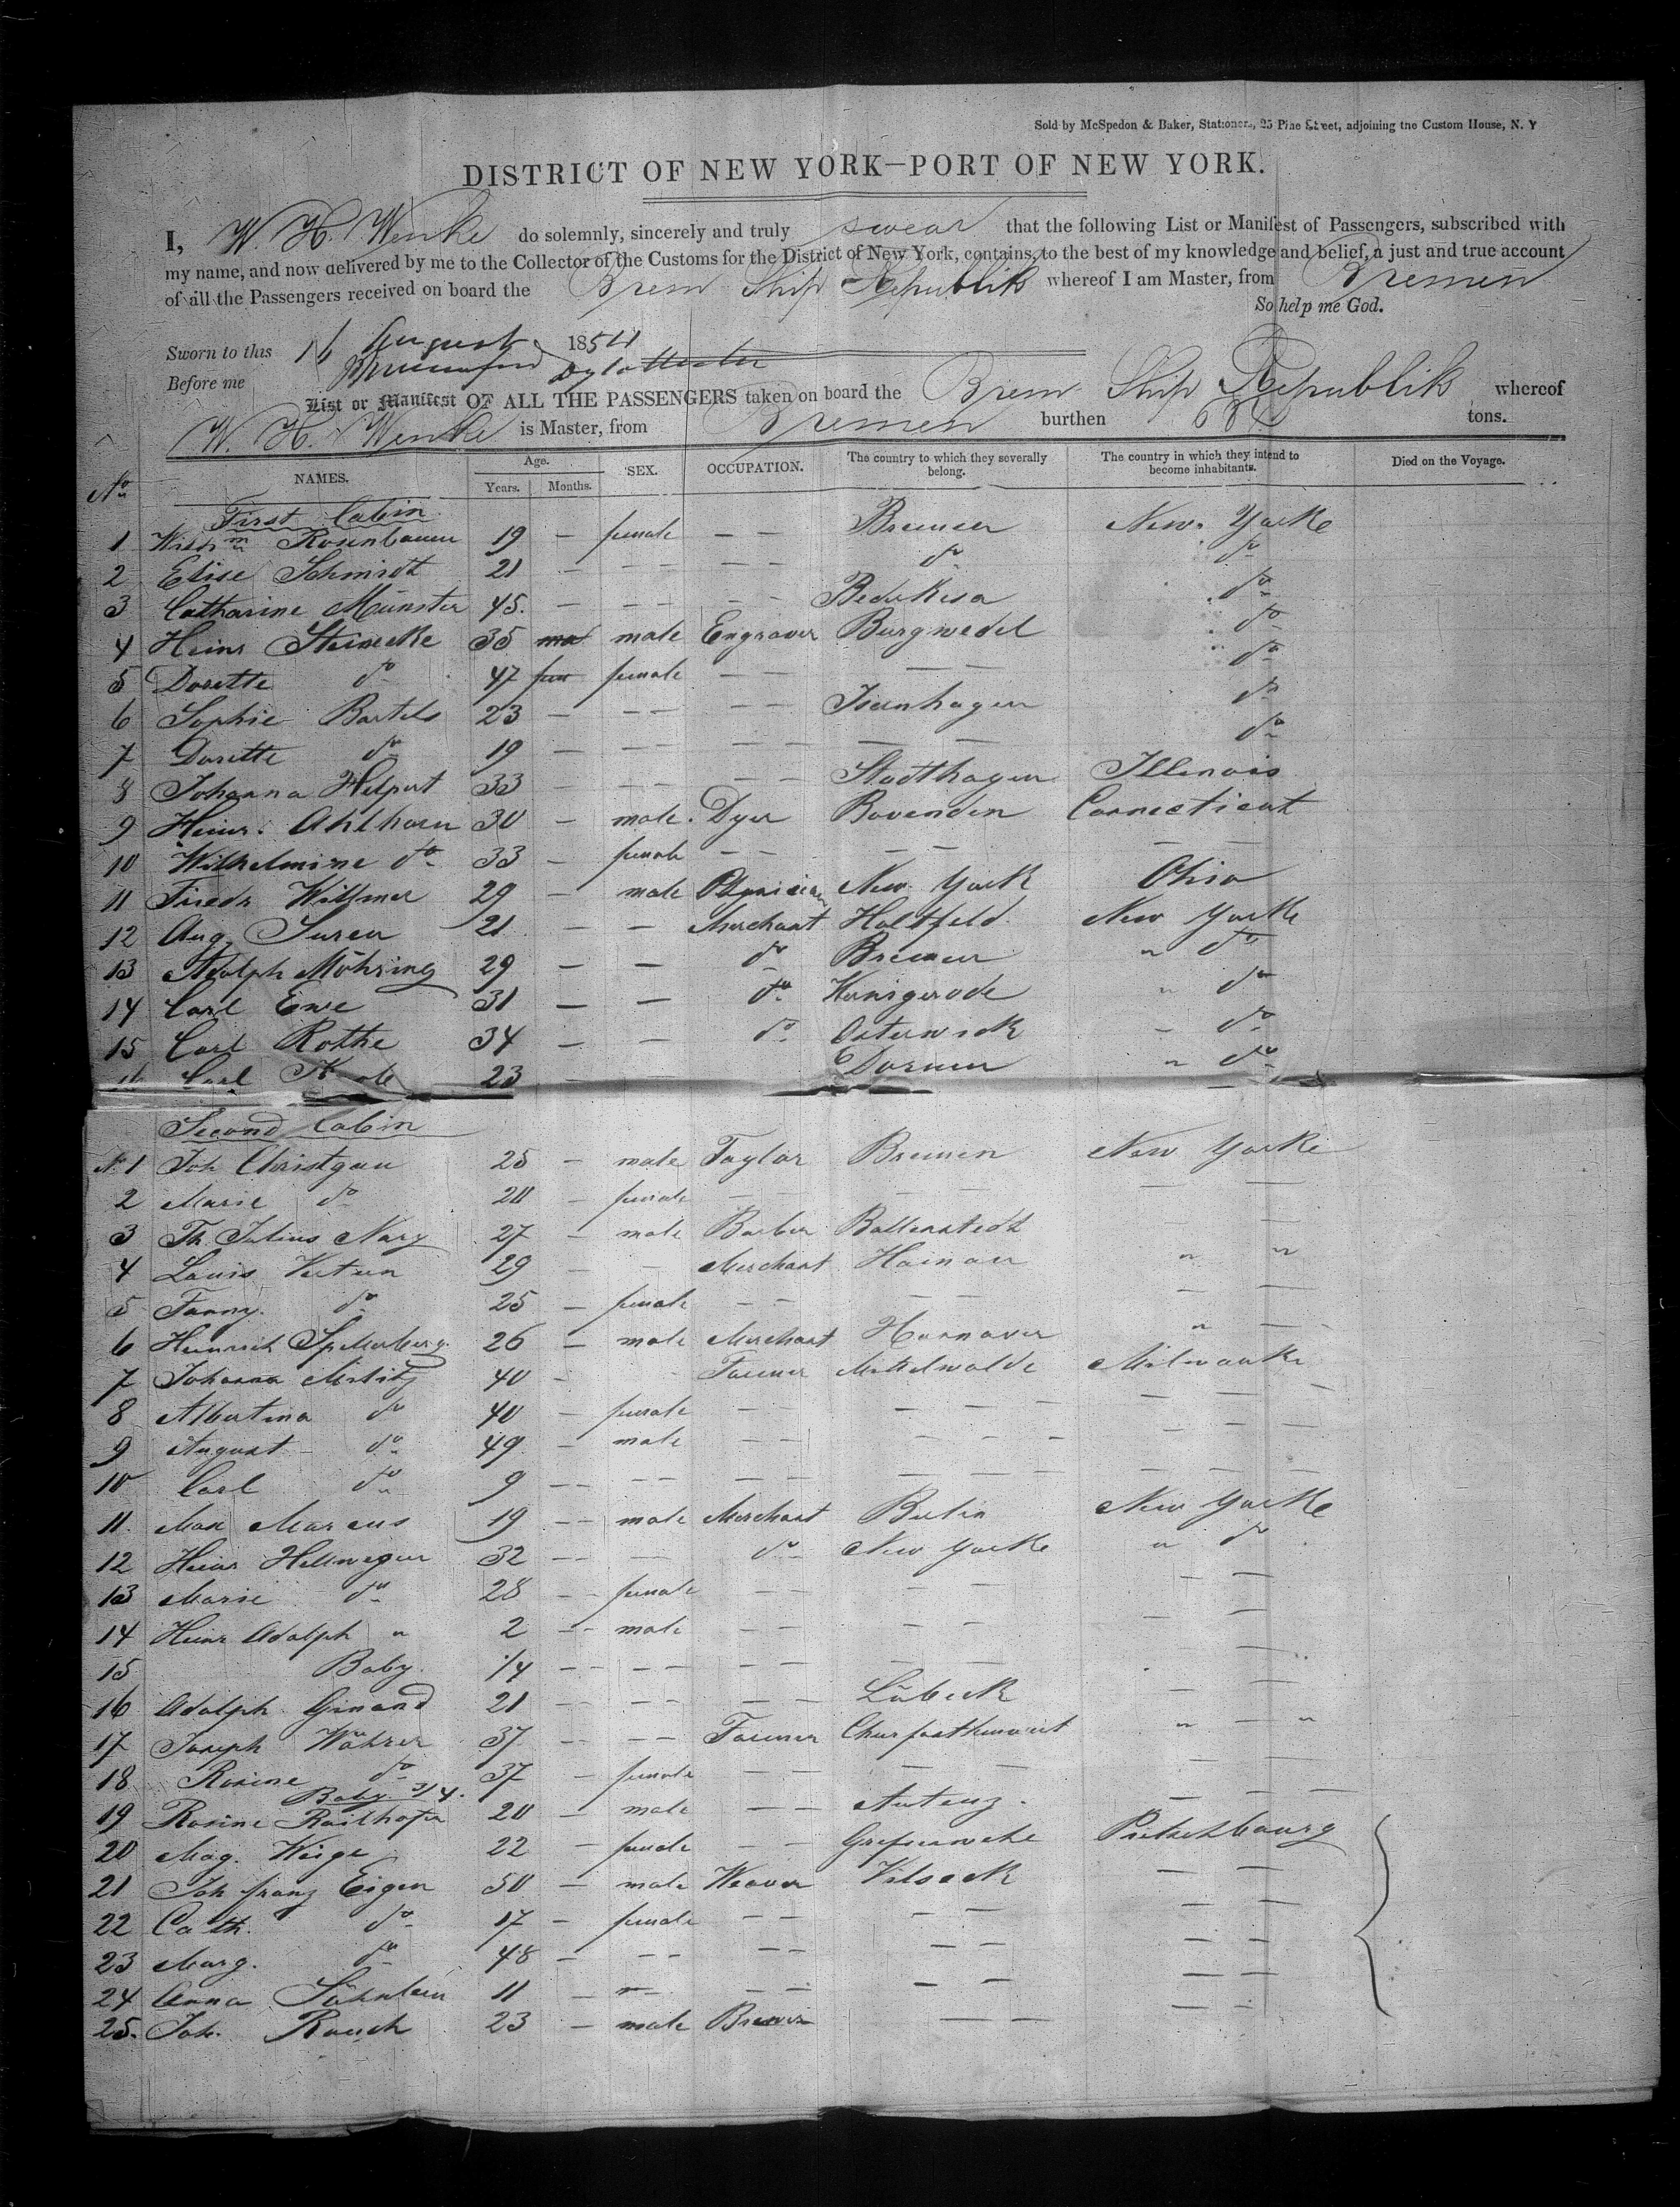 Sold by McSpedon & Baker, Stationers, 25 Pine Street, adjoining the Custom House, N. Y
DISTRICT OF NEW YORK—PORT OF NEW YORK.
I, W. H. Wenke do solemnly, sincerely and truly swear that the following List or Manifest of Passengers, subscribed with
my name, and now delivered by me to the Collector of the Customs for the District of New York, contains, to the best of my knowledge and belief, a just and true account
of all the Passengers received on board the Brem Ship Republik whereof I am Master, from Bremen
So help me God.
Sworn to this 16 August 1854
Before me
List or Manifest OF ALL THE PASSENGERS taken on board the Brem Ship Republik whereof
W. H. Wenke is Master, from Bremen burthen tons.
No NAMES. Age. Years. Months. SEX. OCCUPATION. The country to which they severally belong. The country in which they intend to become inhabitants. Died on the Voyage.
First Cabin
1 Rosenbaum 19 — female — — Bremen New Yorke
2 Elise Schmidt 21 — — — — — do do
3 Catharine Münster 45. — — — — — Bederkesa do
4 Heinr Steinecke 35 male Engraver Burgwedel do
5 Dorette do 47 female — — — — do
6 Sophie Bartels 23 — — — — — Isernhagen do
7 Dorette do 19 — — — — — — — do
8 Johanna Helpert 33 — — — — — Stadthagen Illenois
9 Heinr. Ahlborn 30 — male. Dyer Bovenden Connecticut
10 Wilhelmine do 33 — female — — — — — —
11 Friedr Willmer 29 — male Physician New York Ohio
12 Aug. Suren 21 — — Merchant Holtfeld New Yorke
13 Adolph Möhring 29 — — do Bremen " do
14 Carl Ewe 31 — — do Wernigerode " do
15 Carl Rothe 34 — — do Osterwick – do
16 Carl 23 Dornum " do
Second Cabin
N. 1 Joh Christgau 25 — male Taylor Bremen New Yorke
2 Marie do 20 — female — — — — —
3 Th. Julius Nary 27 — male Barber Ballenstedt —
4 Louis 29 — — Merchant Hainau " "
5 Fanny. do 25 — female — — — — — —
6 Heinrich Spellerberg. 26 — male Merchant Hannover " —
7 Johanna 40 – Farmer Mittelwalde Milwauke
8 Albertina do 40 — female — — — — — — — —
9 August do 49 — male — — — — — — —
10 Carl do 9 — — — — — — — — — — — —
11. Max Marcus 19 — — male Merchant Berlin New Yorke
12 Heinr Hellwegen 32 — — — do New Yorke " do
13 Marie do 28 — — female — — — — — —
14 Heinr Adolph " 2 — — male — — — — — —
15 Baby. 1/4 — — — — — — — — —
16 Adolph Ginand 21 — — — — — — Lübeck — —
17 Joseph Wührer 37 — — — — Farmer " — "
18 Rosine do 37 — female — — — — — —
Baby 3/4.
19 Rosine Railhofer 20 — male — — — — —
20 Mag. Weige 22 — female — — Pittschbourg
21 Joh franz Eigen 50 — male Weaver Vilseck — —
22 Cath. do 17 — female — — — — — —
23 Marg. do 48 — — — — — — — — —
24 Anna 11 — " — — — — — — —
25. Joh. Rauch 23 — male Brewer — — — —